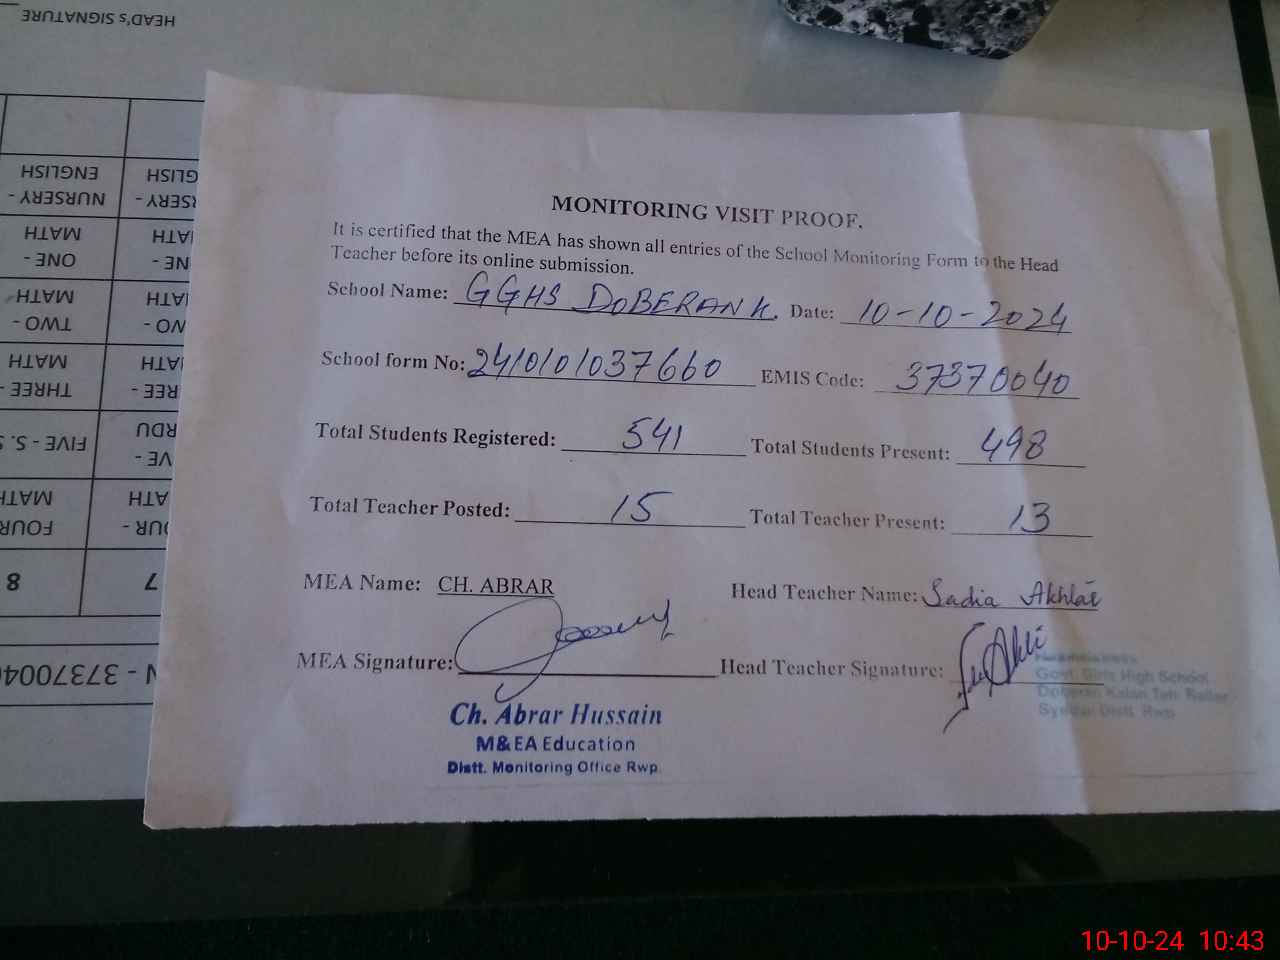 HEAD's SIGNATURE
MONITORING VISIT PROOF.
It is certified that the MEA has shown all entries of the School Monitoring Form to the Head
Teacher before its online submission.
School Name: GGHS DOBERAN K. Date: 10-10-2024
School form No: 2410101037660 EMIS Code: 37370040
Total Students Registered: 541 Total Students Present: 498
Total Teacher Posted: 15 Total Teacher Present: 13
MEA Name: CH. ABRAR Head Teacher Name: Sadia Akhtar
MEA Signature: Head Teacher Signature:
Ch. Abrar Hussain
M&EA Education
Distt. Monitoring Office Rwp.
Govt. Girls High School
Doberan Kalan Teh. Kallar
Syedan Distt. Rwp
NURSERY - ENGLISH
ONE - MATH
TWO - MATH
THREE - MATH
FIVE - S. S
FOUR MATH
8
7
N - 3737004
10-10-24 10:43